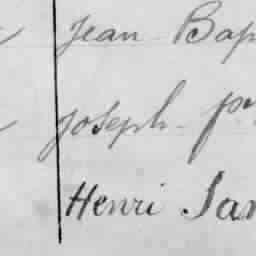 Jean Bap
Joseph
Henri Jan